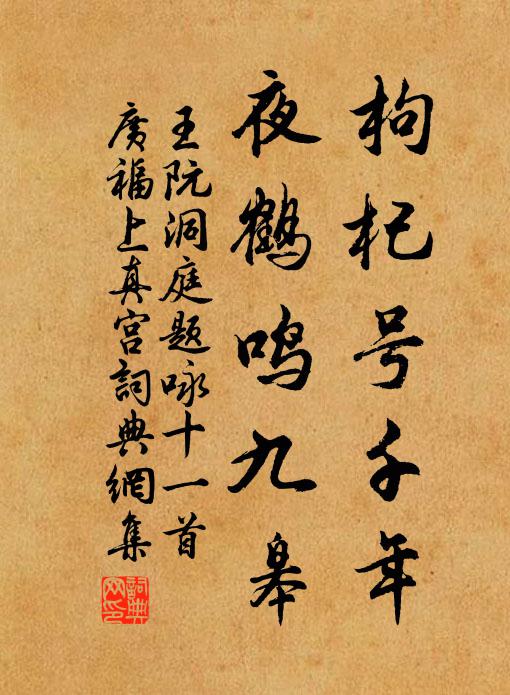 枸杞号千年
夜鹤鸣九皋
王阮洞庭题咏十一首
廣福上真宫詞典網集
詞典网印